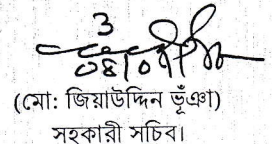 (মো: জিয়াউদ্দিন ভূঁঞা)
সহকারী সচিব।